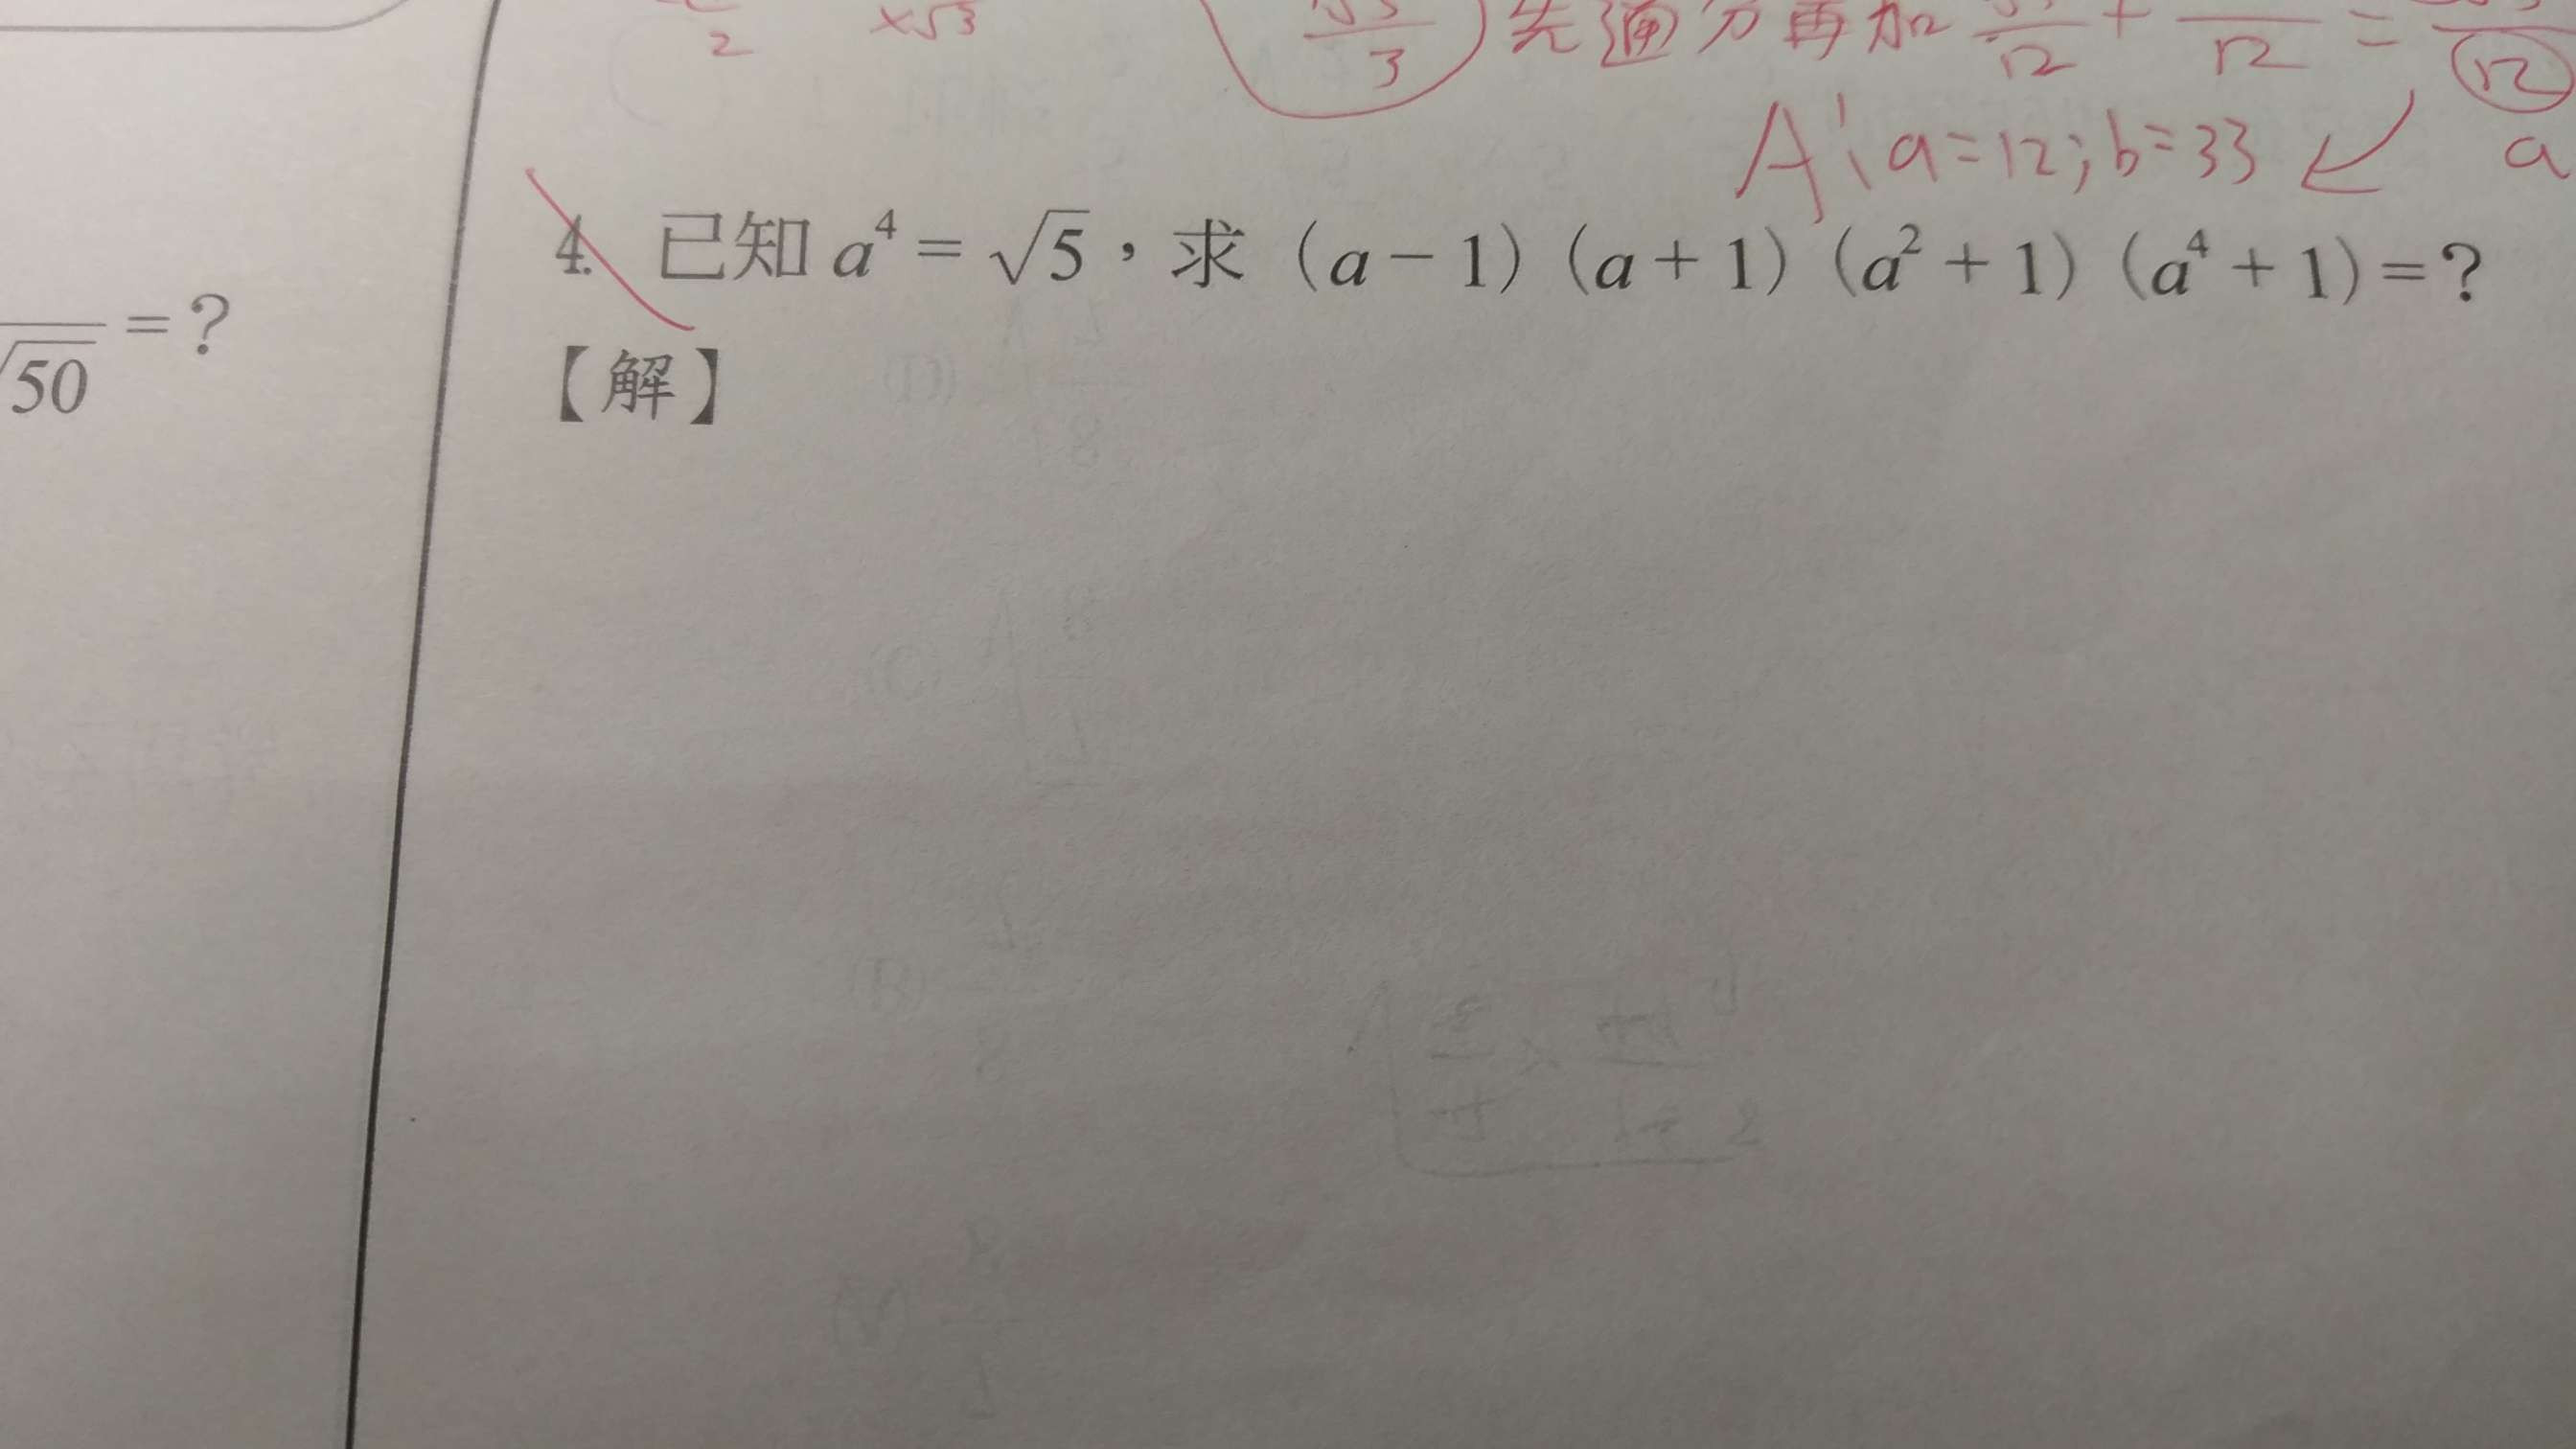 2 ×√3 3 先通分再加 12 + 12 = 12
A:a=12;b=33 a
√50 =?
4. 已知 a⁴ = √5,求(a-1)(a+1)(a²+1)(a⁴+1)=?
【解】